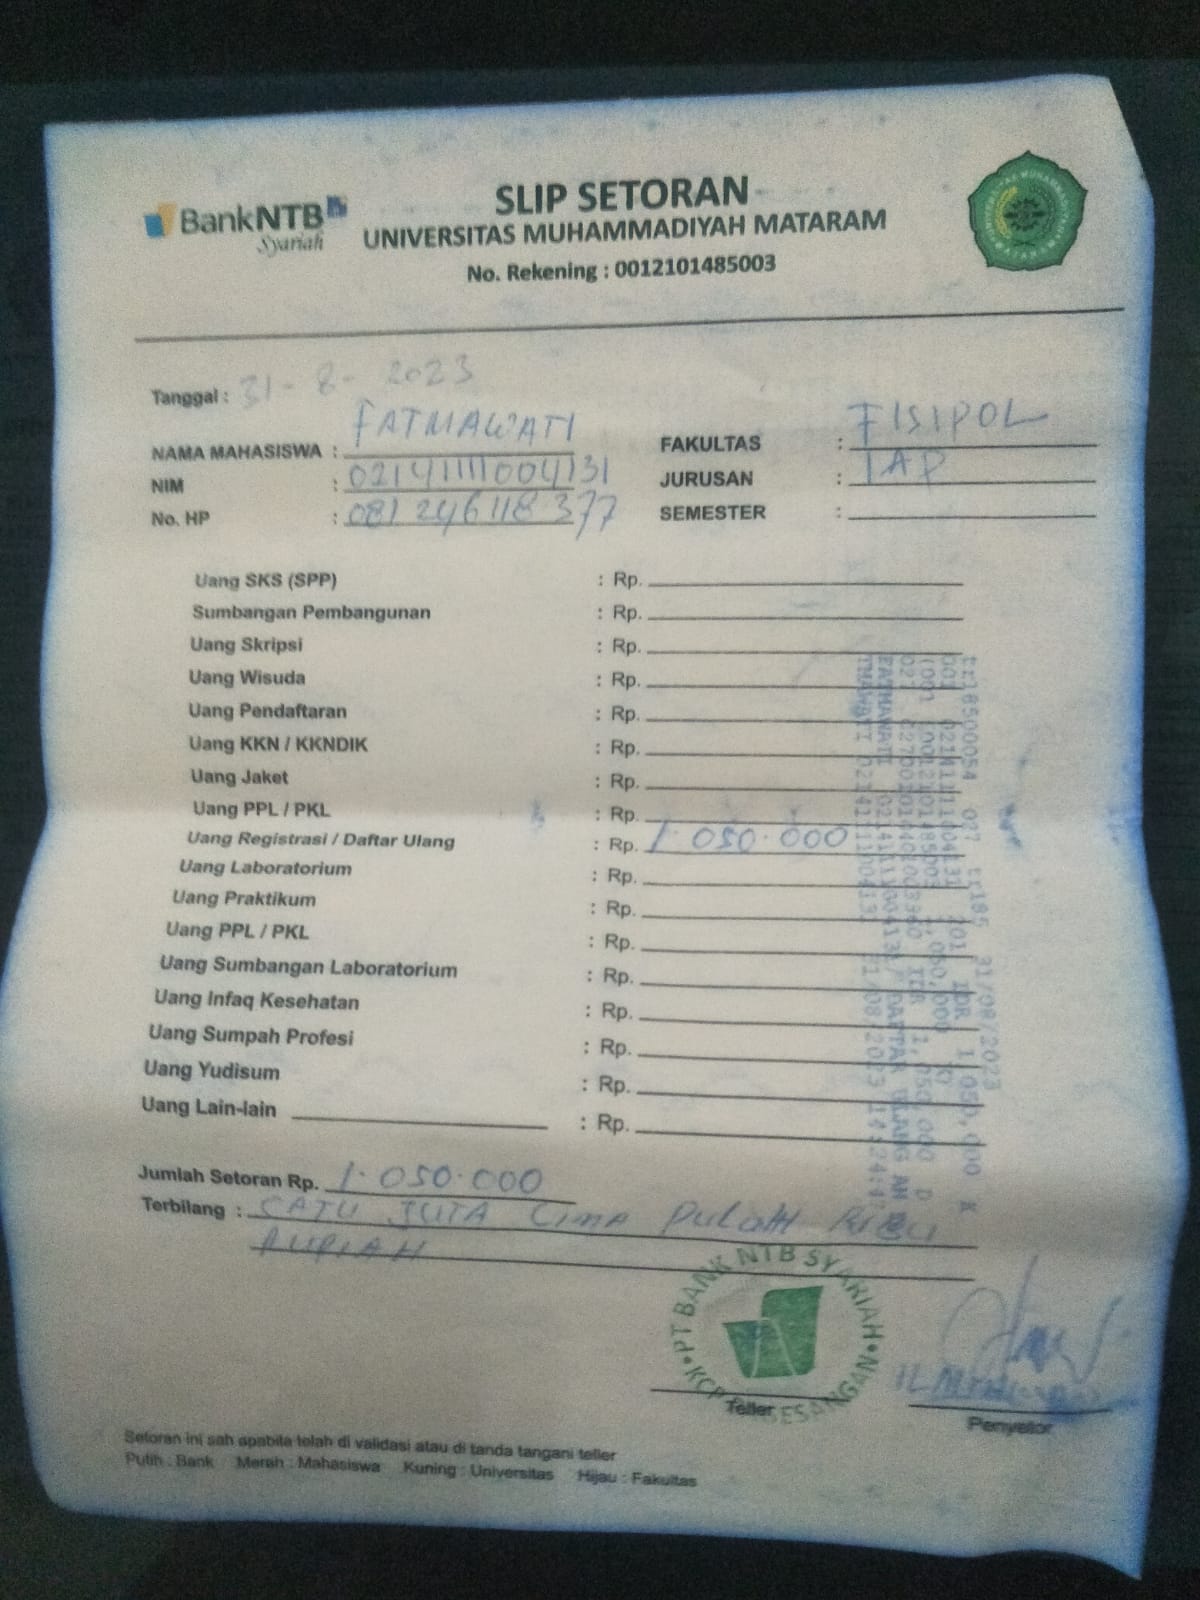 BankNTB Syariah
SLIP SETORAN
UNIVERSITAS MUHAMMADIYAH MATARAM
No. Rekening : 0012101485003
Tanggal : 31 - 8 - 2023
NAMA MAHASISWA : FATMAWATI
NIM : 02141111004131
No. HP : 081 246 118 377
FAKULTAS : FISIPOL
JURUSAN : IAP
SEMESTER :
Uang SKS (SPP) : Rp.
Sumbangan Pembangunan : Rp.
Uang Skripsi : Rp.
Uang Wisuda : Rp.
Uang Pendaftaran : Rp.
Uang KKN / KKNDIK : Rp.
Uang Jaket : Rp.
Uang PPL / PKL : Rp.
Uang Registrasi / Daftar Ulang : Rp. 1.050.000
Uang Laboratorium : Rp.
Uang Praktikum : Rp.
Uang PPL / PKL : Rp.
Uang Sumbangan Laboratorium : Rp.
Uang Infaq Kesehatan : Rp.
Uang Sumpah Profesi : Rp.
Uang Yudisum : Rp.
Uang Lain-lain : Rp.
tr18500054 027 tr185 31/08/2023
001 02141111004131 IDR 1,050,000
0012101485003 1,050,000
027 IDR 1,050,000 D
FATMAWATI 02141111004131/ DAFTAR ULANG AN
02141111004131 31/08/2023
Jumlah Setoran Rp. 1.050.000
Terbilang : SATU JUTA LIMA PULUH RIBU
RUPIAH
PT BANK NTB SYARIAH
KCP SESANGAN
Teller
Penyetor
Setoran ini sah apabila telah di validasi atau di tanda tangani teller
Putih : Bank Merah : Mahasiswa Kuning : Universitas Hijau : Fakultas